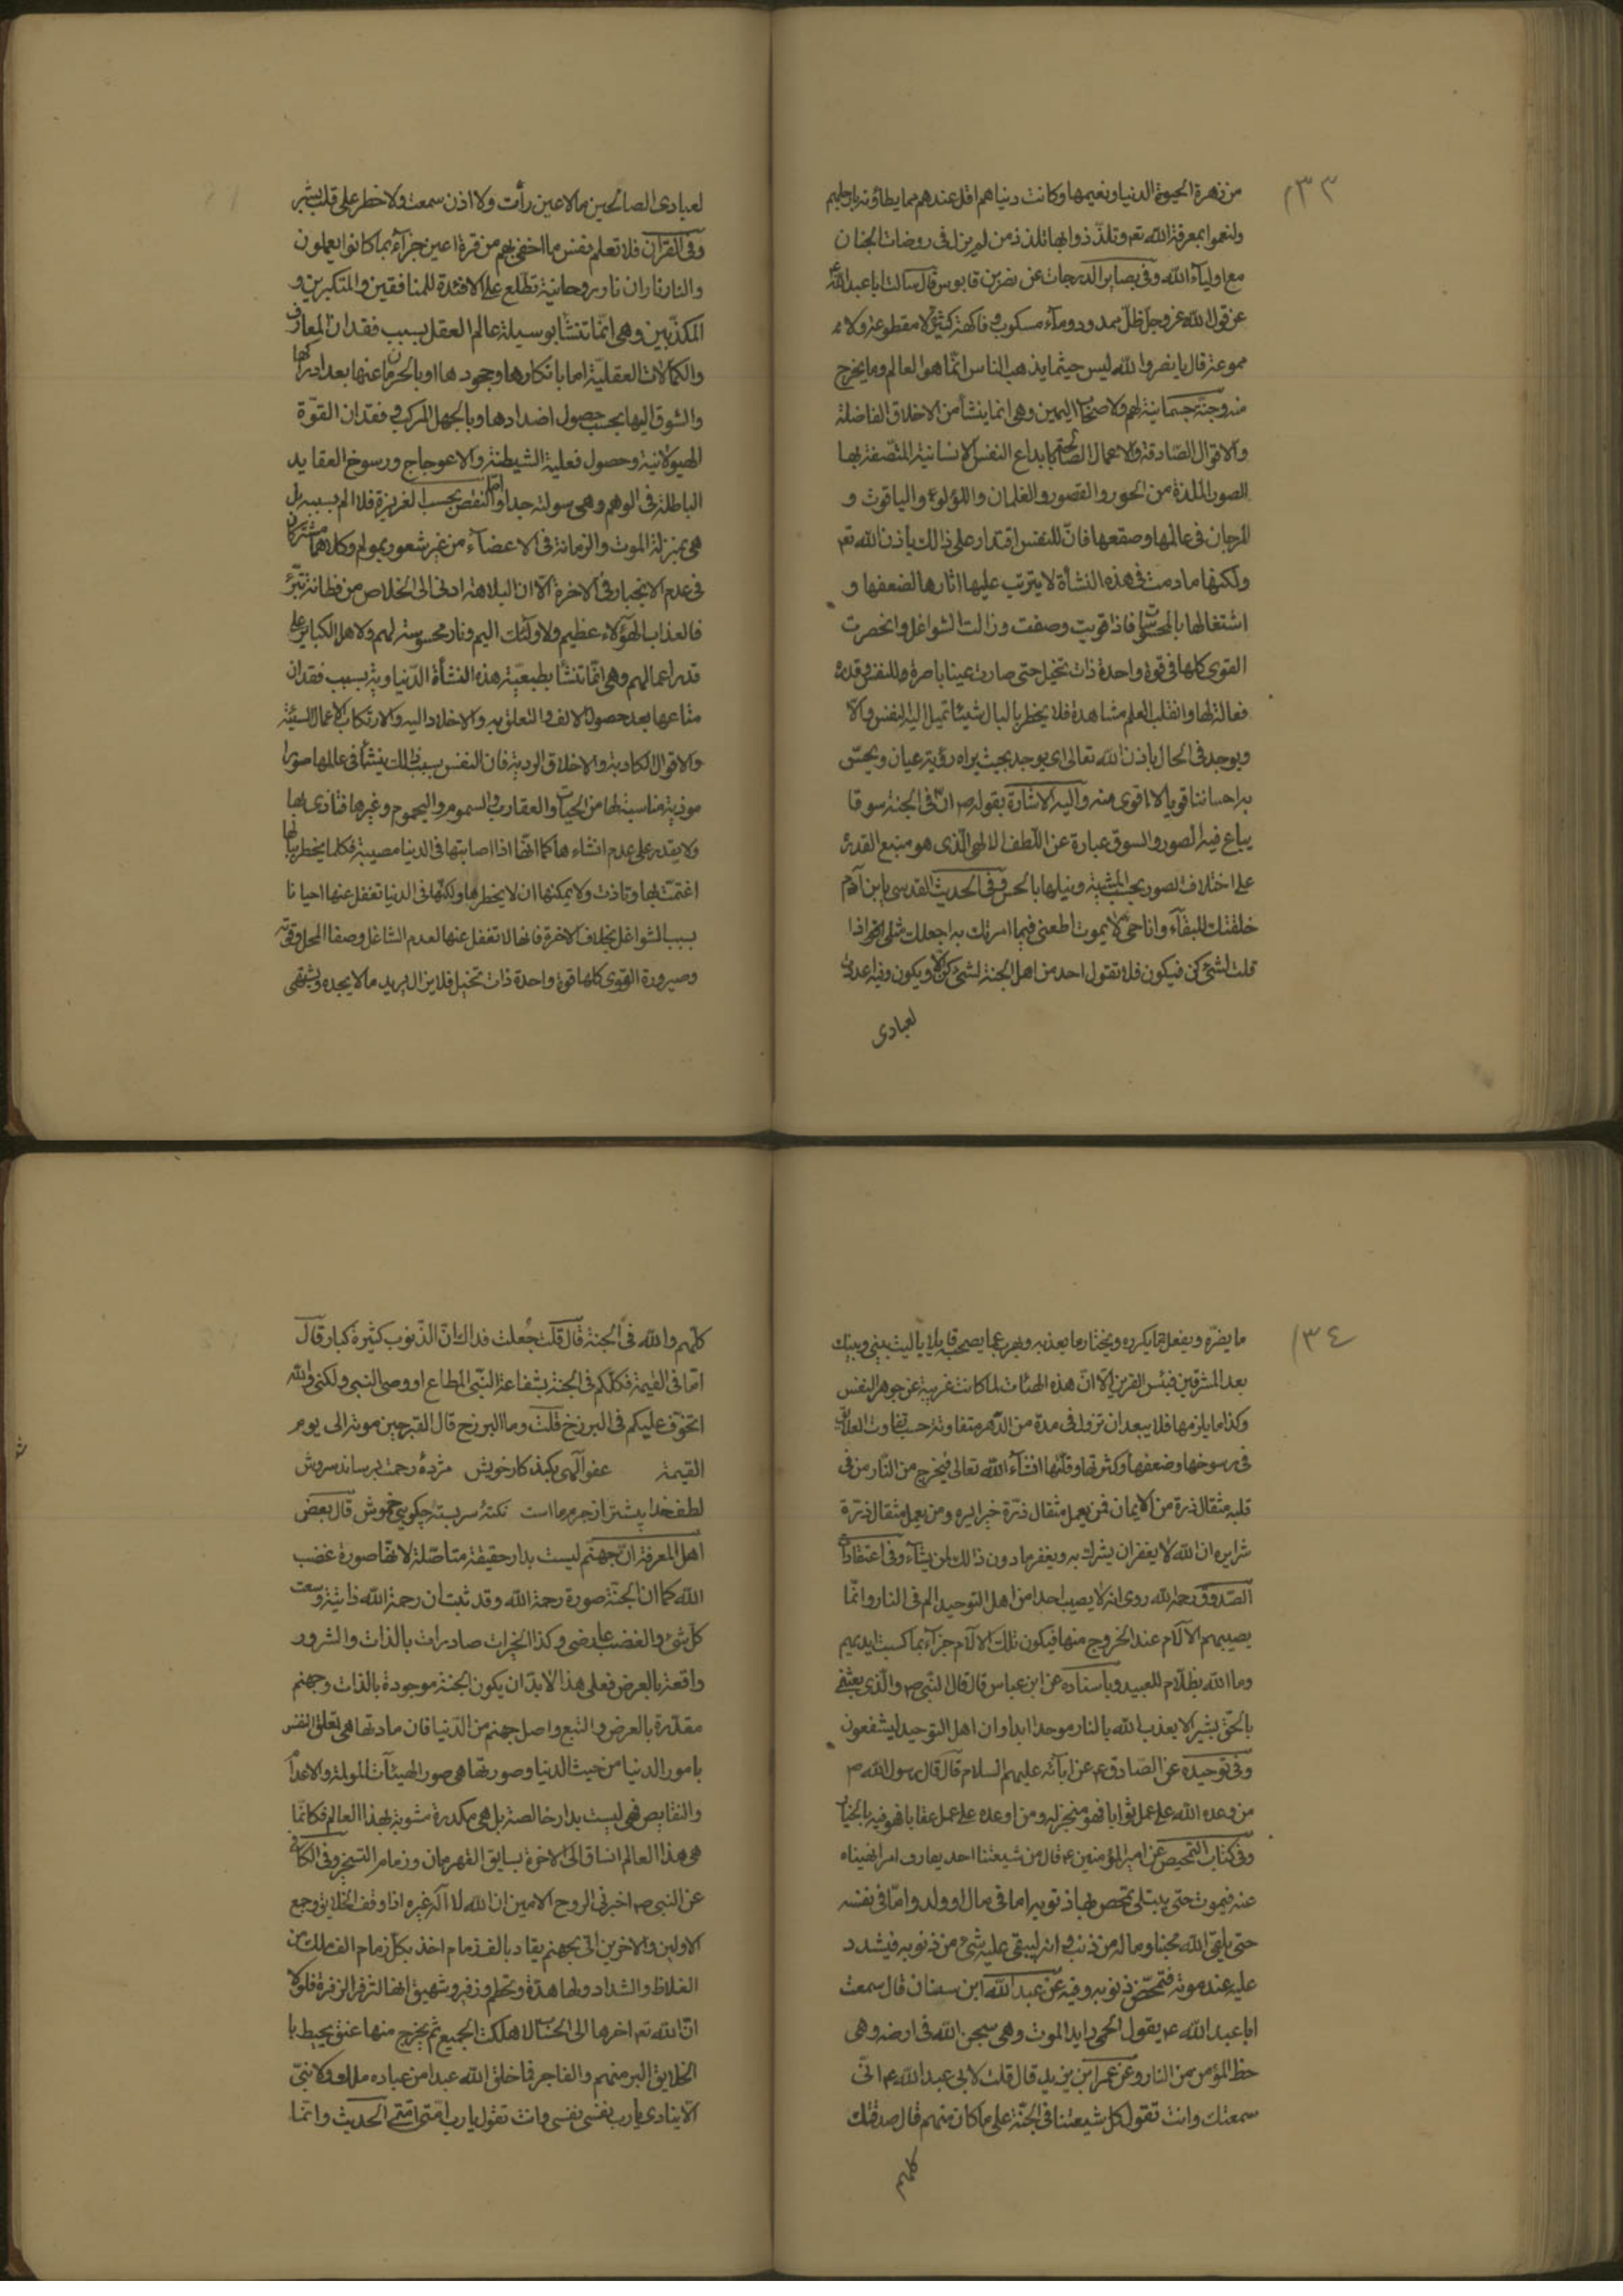 ١٣٣
من زهرة الحيوة الدنيا ونعيمها وكانت دنياهم اقل عندهم مما يطاؤنه بارجلهم
ولنعموا بمعرفة الله تع وتلذّذوا بها تلذذ من لم يزل فى روضات الجنان
مع اولياء الله وفى بصاير الدرجات عن نضر بن قابوس قال سالت ابا عبد الله ع
عن قول الله عز وجل ظلّ ممدود وماء مسكوب وفاكهة كثيرة لا مقطوعة ولا مم
ممنوعة قال يا نضر والله ليس حيثما يذهب الناس انّما هو العالم وما يخرج
منه وجنّة جسمانية لهم ولاصحاب اليمين وهى انما ينشأ من الاخلاق الفاضلة
والاقوال الصّادقة والاعمال الصالحة بابداع النفس الانسانية المتّصفة بها
الصور الملذة من الحور والقصور والغلمان واللؤلوء والياقوت و
المرجان فى عالمها وصقعها فانّ للنفس اقتدار على ذالك باذن الله تع
ولكنها مادمت فى هذه النشأة لا يترتب عليها اثارها لضعفها و
اشتغالها بالمحسوسات فاذا قويت وصفت وزالت الشواغل وانحصرت
القوى كلها فى قوة واحدة ذات تخيل حتى صارت عينا باصرة وللنفس قدرة
فعالة لها وانقلب العلم مشاهدة فلا يخطر بالبال شيئا تميل اليه النفس والّا
ويوجد فى الحال باذن الله تعالى اى يوجد بحيث يراه رؤية عيان ويحسّ
به احساسا قويا لا اقوى منه واليه الاشارة بقوله ص انّ فى الجنة سوقا
يباع فيه الصور والسوق عبارة عن اللّطف الالهى الّذى هو منبع القدرة
على اختلاف الصور بحسب المشية ونيلها بالحس وفى الحديث القدسى يابن آدم
خلقتك للبقآء وانا حىّ لا يموت اطعنى فيما امرتك به اجعلك مثلى انا اذا
قلت لشئ كن فيكون فلا تقول احد من اهل الجنة لشئ كن الّا ويكون وفيه اعددت
لعبادى
لعبادى الصالحين ما لا عين رأت ولا اذن سمعت ولا خطر على قلب بشر
وفى القرآن فلا تعلم نفس ما اخفى لهم من قرة اعين جزآء بما كانوا يعملون
والنار ناران نار روحانية تطّلع على الافئدة للمنافقين والمتكبرين و
المكذّبين وهى انّما تنشأ بوسيلة عالم العقل بسبب فقدان المعارف
والكمالات العقليّة اما بانكارها وجحودها او بالحرمان عنها بعد ادراكها
والشوق اليها بحسب حصول اضدادها وبالجهل المركب و فقدان القوّة
الهيولانية وحصول فعلية الشيطنة والاعوجاج ورسوخ العقايد
الباطلة فى الوهم وهى سولة جدا واما النقص بحسب الغريزة فلا الم بسببه بل
هى بمنزلة الموت والزمانة فى الاعضآء من غير شعور بمولم وكلاهما مشتركان
فى عدم الانجبار فى الاخرة الّا ان البلاهة ادنى الى الخلاص من فطانة بترّء
فالعذاب لهؤلاء عظيم ولاولئك اليم ونار محسوسة لهم ولاهل الكباير على
قدر اعمالهم وهى انّما تنشأ بطبعيّة هذه النشأة الدّنياوية بسبب فقدان
متاعها بعد حصول الالف والتعلق به والاخلاد اليه والارتكاب الاعمال السيّئة
والاقوال الكاذبة والاخلاق الردية فان النفس بسبب ذالك ينشأ فى عالمها صورا
موذية مناسبة لها من الحيات والعقارب والسموم واليحموم وغيرها فتاذى بها
ولا يقدر على عدم انشاءها كما انّها اذا اصابتها فى الدنيا مصيبة فكلما يخطر ببالها
اغتمّت بها وتاذت ولا يمكنها ان لا يخطرها ولكنّها فى الدنيا تغفل عنها احيانا
بسبب الشواغل بخلاف الاخرة فانها لا تغفل عنها لعدم الشاغل وصفا المحل وقوّة
وصيرورة القوى كلها قوة واحدة ذات تخيل فلا يزال يريد ما لا يجده ويشتهى
١٣٤
ما يضرّه ويفعل ما يكره ويختار ما يعذبه ويهرب عما يصحبه قايلا يا ليت بينى وبينك
بعد المشرقين فبئس القرين الّا انّ هذه الهئات لما كانت غريبة عن جوهر النفس
وكذا ما يلزمها فلا يبعد ان تزول فى مدة من الدّهر متفاوتة حسب تفاوت العلايق
فى رسوخها وضعفها وكثرتها وقلّتها انشآء الله تعالى فيخرج من النّار من فى
قلبه مثقال ذرة من الايمان فمن يعمل مثقال ذرّة خيرا يره ومن يعمل مثقال ذرّة
شرا يره ان الله لا يغفر ان يشرك به ويغفر ما دون ذالك لمن يشآء وفى اعتقادات
الصّدوق رحمة الله روى انه لا يصيب احدا من اهل التوحيد الم فى النار وانّما
يصيبهم الآلام عند الخروج منها فيكون تلك الالام جزآء بما كسبت ايديهم
وما الله بظلّام للعبيد وباسناده عن ابن عباس قال قال النّبى ص والّذى بعثنى
بالحقّ بشيرا لا يعذب الله بالنار موحدا ابدا وان اهل التوحيد ليشفعون
وفى توحيده عن الصّادق ع عن آبآئه عليهم السلام قال قال رسول الله ص
من وعده الله على عمل ثوابا فهو منجز له ومن اوعده على عمل عقابا فهو فيه بالخيار
وفى كتاب التمحيص عن امير المؤمنين ع قال من شيعتنا احد يقارف امرا نهيناه
عنه فيموت حتى يبتلى تمحص بها ذنوبه اما فى مال او ولد وامّا فى نفسه
حتى يلقى الله محبنا وماله من ذنب وانه ليبقى عليه شئ من ذنوبه فيشدد
عليه عند موته فتمحّص ذنوبه وفيه عن عبد الله ابن سنان قال سمعت
ابا عبد الله ع يقول الحمى رايد الموت وهى سجن الله فى ارضه وهى
حظ المؤمن من النار وعن عمر ابن يزيد قال قلت لابى عبد الله ع انّى
سمعتك وانت تقول كل شيعتنا فى الجنّة على ما كان منهم قال صدقتك
كلهم
كلّهم والله فى الجنة قال قلت جُعلت فداك انّ الذّنوب كثيرة كبار قال
امّا فى القيمة فكلّكم فى الجنة بشفاعة النّبى المطاع او وصى النبى ولكنى والله
اتخوّف عليكم فى البرزخ قلت وما البرزخ قال القبر حين موته الى يوم
القيمة عفو آلهى بكند كار خويش مژدهٔ رحمت برساند سروش
لطف خدا بيشتر از جرم ما است نكتهٔ سربسته چكويى خموش قال بعض
اهل المعرفة انّ جهنّم ليست بدار حقيقة متاصّلة لانّها صورة غضب
الله كما ان الجنّة صورة رحمة الله وقد ثبت ان رحمة الله ذاتية وسعت
كل شئ والغضب عارضى وكذا الخيرات صادرات بالذات والشرور
واقعة بالعرض فعلى هذا لابدّ ان يكون الجنة موجودة بالذات وجهنم
مقدّرة بالعرض والتبع واصل جهنم من الدّنيا فان مادتها هى تعلق النفس
بامور الدنيا من حيث الدنيا وصورتها هى صور الهيئآت المولمة والاعدام
والنقايص فهى ليست بدار خالصة بل هى مكدرة مشوبة بهذا العالم فكانّما
هى هذا العالم انساق الى الاخرة بسايق القهرمان وزمام التسخير وفى الكافى
عن النبى ص اخبرنى الروح الامين ان الله لا اله غيره اذا وقف الخلايق وجمع
الاولين والاخرين اتى بجهنم يقاد بالف زمام اخذ بكل زمام الف ملك من
الغلاظ والشداد ولها هدة وتحطم وزفير وشهيق انها لتزفر الزفرة فلولا
انّ الله تع اخرها الى الحساب لاهلكت الجميع ثم يخرج منها عنق يحيط با
الخلايق البر منهم والفاجر فما خلق الله عبدا من عباده ملك ولا نبىّ
الّا ينادى يا رب نفسى نفسى وانت تقول يا رب امّتى امّتى الحديث وانّما